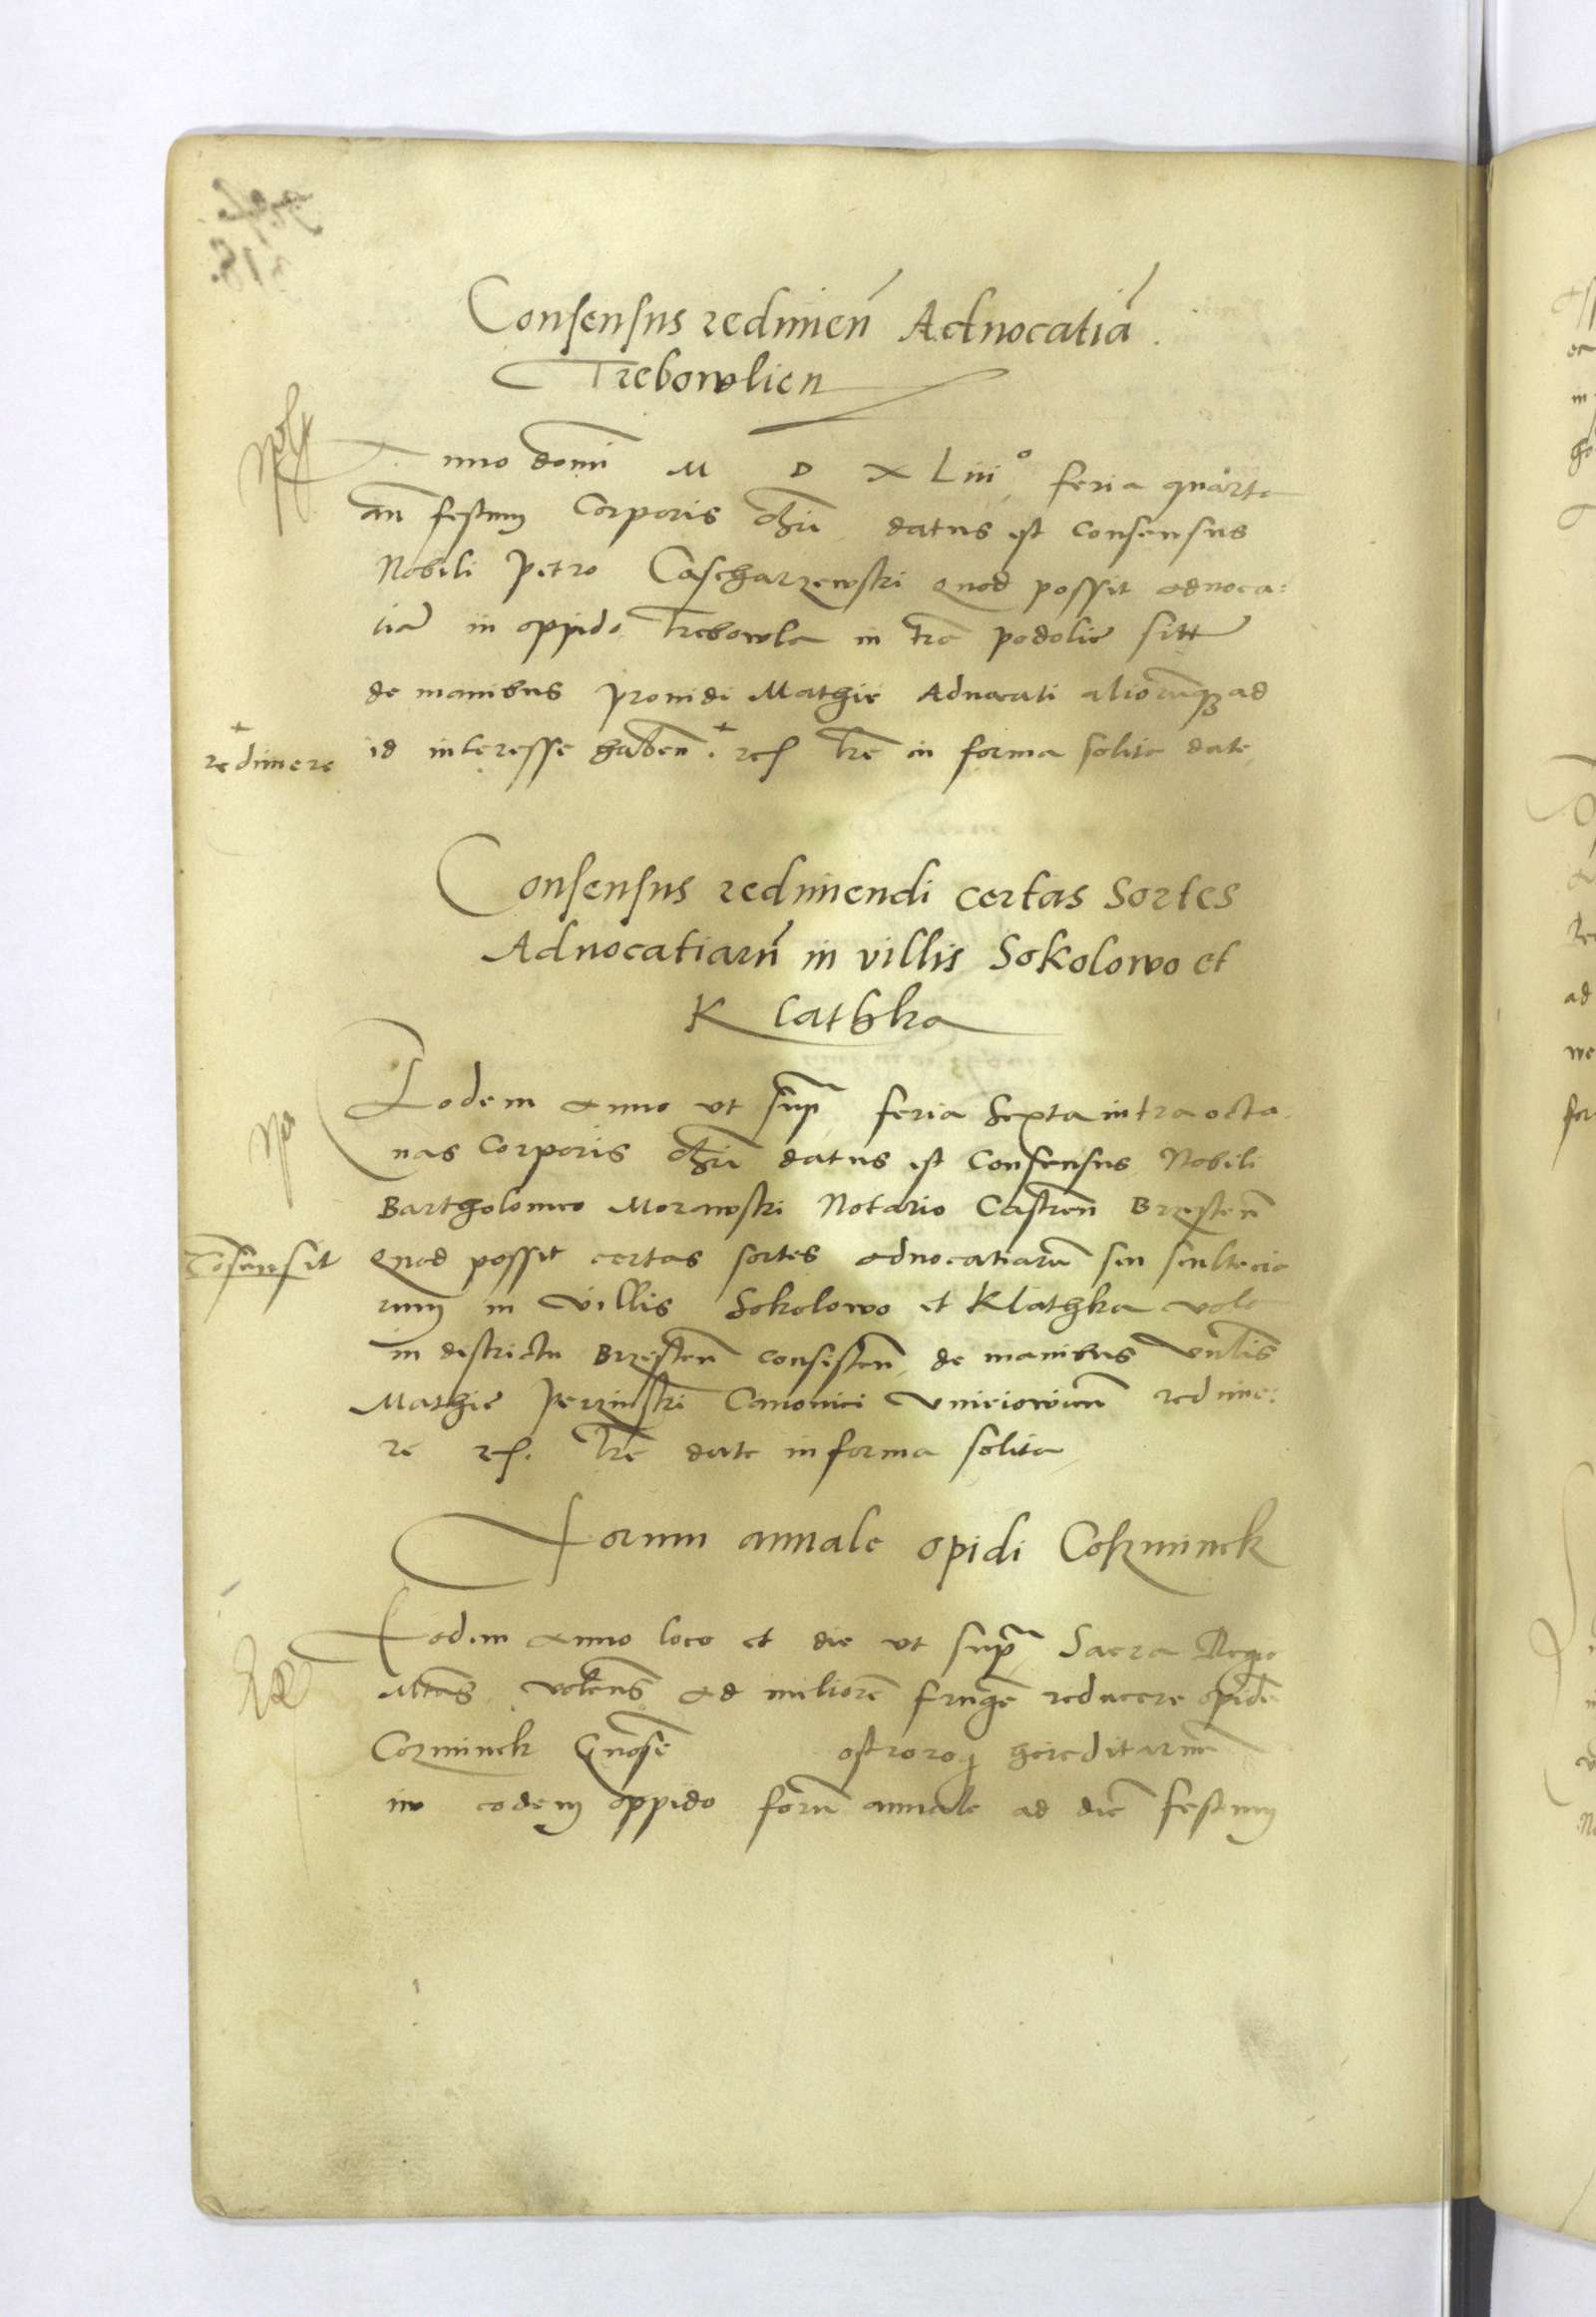 Consensus redimien̄ Aduocatiā
Trebowlien
Anno domī M D XLiiiº feria quarta
an̄ festum Corporis chr̄i datus est Consensus
Nobili Petro Cascharzewski quod possit aduoca:
tiā in oppido Trebowla in tr̄a podolie sitt
de manibus prouidi Mathie Aduocati aliorumq3 ad
redimere
id interesse haben̄ + rcƒ lr̄e in forma solita date
Consensus redimendi certas Sortes
Aduocatiarū in villis Sokolowo et
Klathka
Eodem anno vt sup̄ feria Sexta intra octa
uas Corporis chr̄i datus est Consensus Nobili
Bartholomeo Morawski Notario Castren̄ Brzesten̄
Cōsensit
quod possit certas sortes aduocatiarū seu scultecia
rum in villis Sokolowo et Klathka
in districtu Brzesten̄ consisten̄ de manibus
Mathie Perzinski Canonici Vnieiowien̄ redime:
re rcƒ. lr̄e date in forma solita
Forum annale opidi Cozminek
Eodem anno loco et die vt sup̄ Sacra Regia
Mtas̄ volens̄ ad meliorē frugē reducere opidū
Cozminek Gn̄osi ostrorog hereditariū
in eodem oppido forū annale ad diē festum